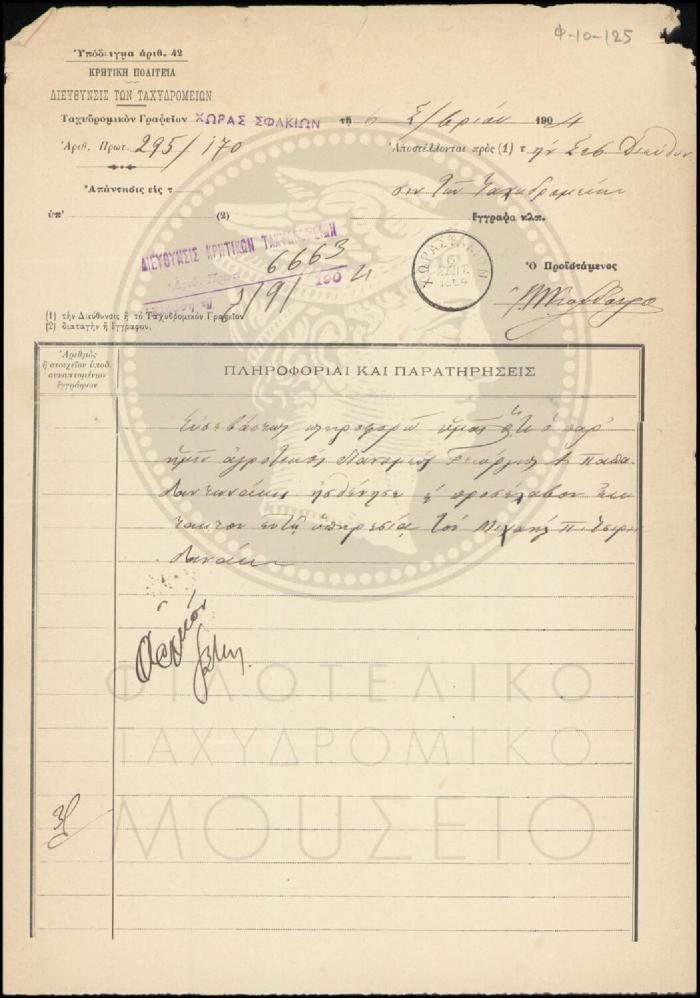 Φ-10-125
Ὑπόδειγμα ἀριθ. 42
ΚΡΗΤΙΚΗ ΠΟΛΙΤΕΙΑ
ΔΙΕΥΘΥΝΣΙΣ ΤΩΝ ΤΑΧΥΔΡΟΜΕΙΩΝ
Ταχυδρομικὸν Γραφεῖον ΧΩΡΑΣ ΣΦΑΚΙΩΝ τῇ 6 Σ/βρίου 1904
Ἀριθ. Πρωτ. 295/170
Ἀποστέλλονται πρὸς (1) τ ὴν Σεβ
Ἀπάντησις εἰς τ
τῶν Ταχυδρομείων
ὑπ' (2)
ἔγγραφα κλπ.
ΔΙΕΥΘΥΝΣΙΣ ΚΡΗΤΙΚΩΝ ΤΑΧΥΔΡΟΜΕΙΩΝ
Ἀριθ. Πρωτ. 6663
9/9/ 1904
ΧΩΡΑ ΣΦΑΚΙΩΝ
6
ΣΕΠΤ.
1904
Ὁ Προϊστάμενος
(1) τὴν Διεύθυνσις ἢ τὸ Ταχυδρομικὸν Γραφεῖον
(2) διαταγὴ ἢ ἔγγραφον.
Ἀριθμὸς
ἢ στοιχεῖον ὑποδ.
συναπτομένων
ἐγγράφων
ΠΛΗΡΟΦΟΡΙΑΙ ΚΑΙ ΠΑΡΑΤΗΡΗΣΕΙΣ
Εὐσεβάστως πληροφορῶ ὑμᾶς ὅτι ὁ παρ'
ἡμῖν ἀγροτικὸς Γεώργιος Παπα
ἠσθένησε προσέλαβον ἔκ
τακτον ὑπηρεσίᾳ τὸν Μιχαὴλ
ΦΙΛΟΤΕΛΙΚΟ
ΤΑΧΥΔΡΟΜΙΚΟ
ΜΟΥΣΕΙΟ